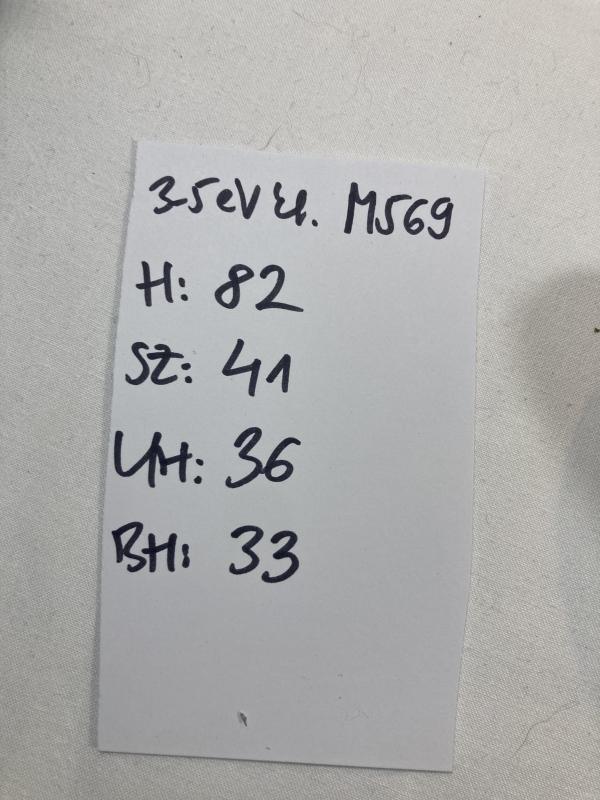 3-5eV M569
H: 82
SZ: 41
UH: 36
BH: 33